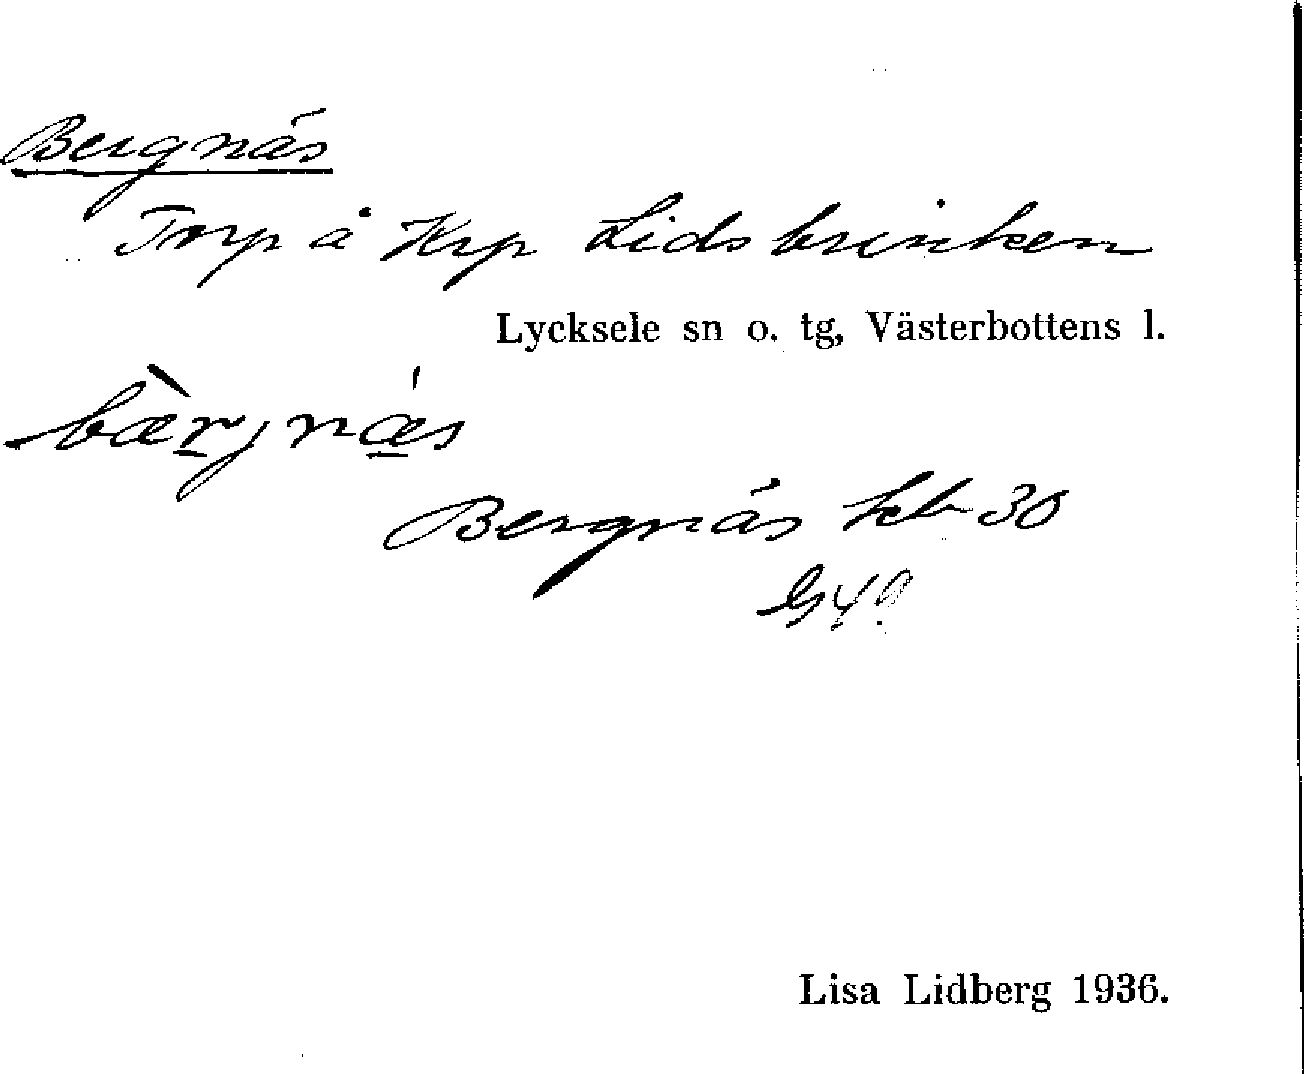 Bergnäs
Torp å Krp Lidsbrinken
Lycksele sn o. tg, Västerbottens l.
bæ̀rjnæ̠s
Bergnäs hb 30
Lisa Lidberg 1936.